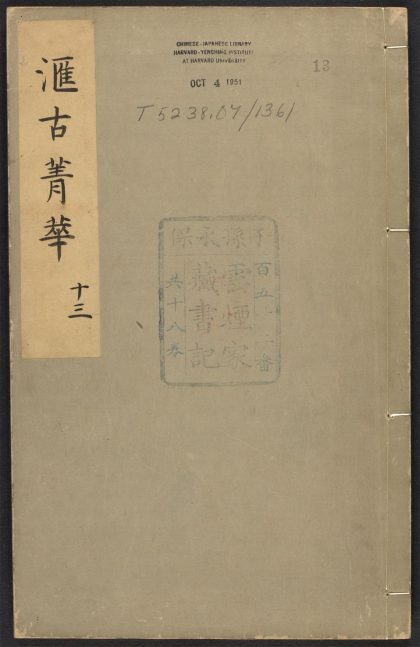 滙古菁華
十三
CHINESE-JAPANESE LIBRARY
HARVARD-YENCHING INSTITUTE
AT HARVARD UNIVERSITY
OCT 4 1951
13
T 5238.07/1361
子孫永保
雲煙家
藏書記
共十八卷